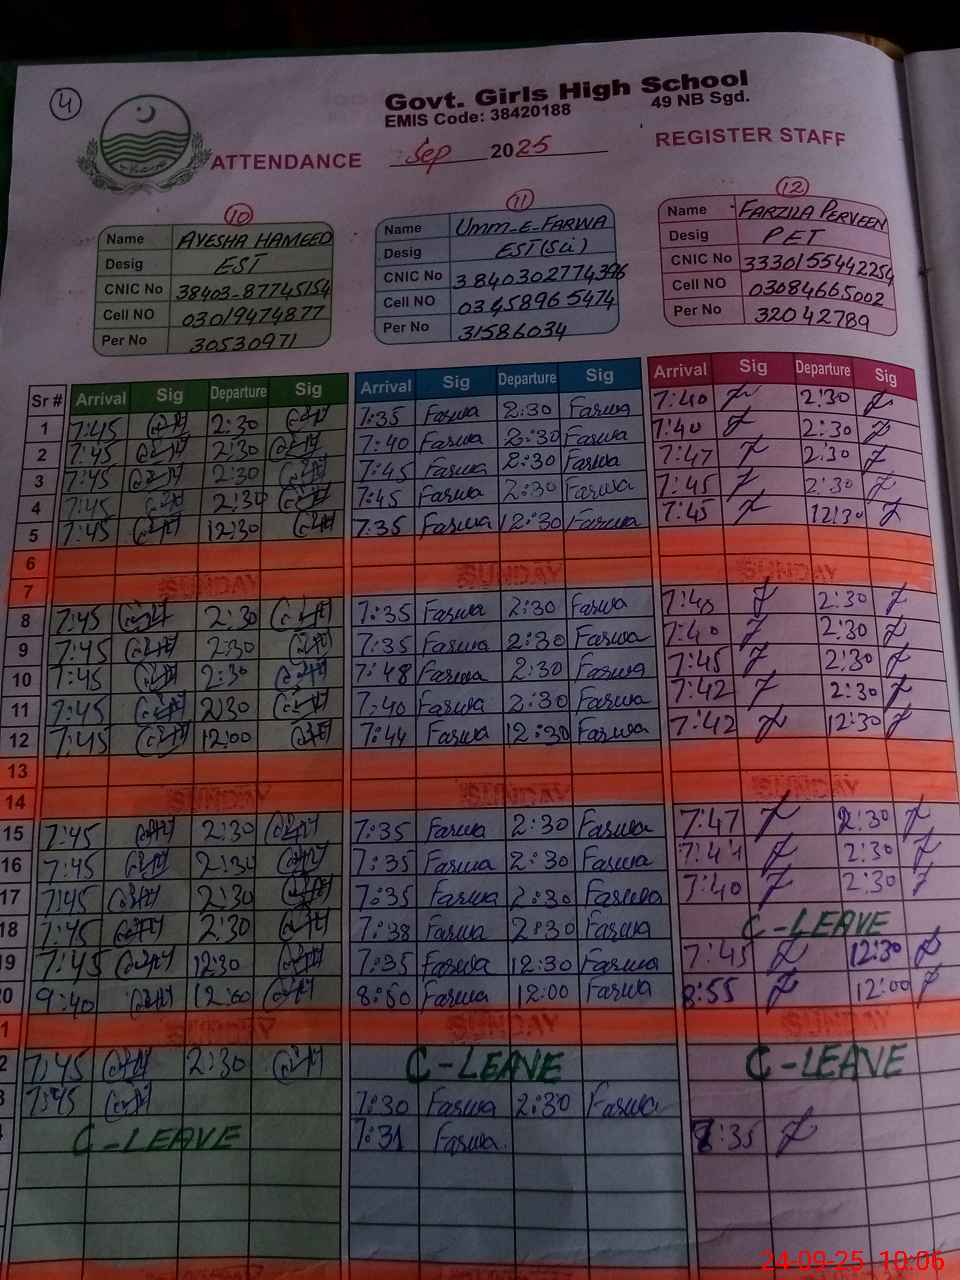 4
Govt. Girls High School
EMIS Code: 38420188 49 NB Sgd.
ATTENDANCE Sep 2025 REGISTER STAFF
10 11 12
Name AYESHA HAMEED Name Umm-E-FARWA Name FARZILA PERVEEN
Desig EST Desig EST(Sci) Desig PET
CNIC No 38403-87745154 CNIC No 3840302774396 CNIC No 3330155442254
Cell NO 03019474877 Cell NO 03458965474 Cell NO 03084665002
Per No 30530971 Per No 31586034 Per No 32042789
Sr # Arrival Sig Departure Sig Arrival Sig Departure Sig Arrival Sig Departure Sig
1 7:45 2:30 7:35 Farwa 2:30 Farwa 7:40 2:30
2 7:45 2:30 7:40 Farwa 2:30 Farwa 7:40 2:30
3 7:45 2:30 7:45 Farwa 2:30 Farwa 7:47 2:30
4 7:45 2:30 7:45 Farwa 2:30 Farwa 7:45 2:30
5 7:45 12:30 7:35 Farwa 12:30 Farwa 7:45 12:30
6
7 SUNDAY SUNDAY SUNDAY
8 7:45 2:30 7:35 Farwa 2:30 Farwa 7:40 2:30
9 7:45 2:30 7:35 Farwa 2:30 Farwa 7:40 2:30
10 7:45 2:30 7:48 Farwa 2:30 Farwa 7:45 2:30
11 7:45 2:30 7:40 Farwa 2:30 Farwa 7:42 2:30
12 7:45 12:00 7:44 Farwa 12:30 Farwa 7:42 12:30
13
14 SUNDAY SUNDAY SUNDAY
15 7:45 2:30 7:35 Farwa 2:30 Farwa 7:47 2:30
16 7:45 2:30 7:35 Farwa 2:30 Farwa 7:44 2:30
17 7:45 2:30 7:35 Farwa 2:30 Farwa 7:40 2:30
18 7:45 2:30 7:38 Farwa 2:30 Farwa C-LEAVE
19 7:45 12:30 7:35 Farwa 12:30 Farwa 7:45 12:30
20 9:40 12:00 8:50 Farwa 12:00 Farwa 8:55 12:00
1 SUNDAY SUNDAY SUNDAY
2 7:45 2:30 C-LEAVE C-LEAVE
3 7:45 7:30 Farwa 2:30 Farwa
C-LEAVE 7:31 Farwa. 8:35
24-09-25 10:06